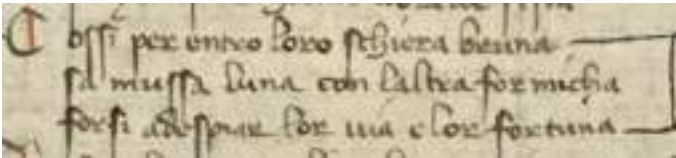 Cossi per entro loro schiera bruna
sa mussa luna con laltra formicha
forsi adespiar lor uia e lor fortuna